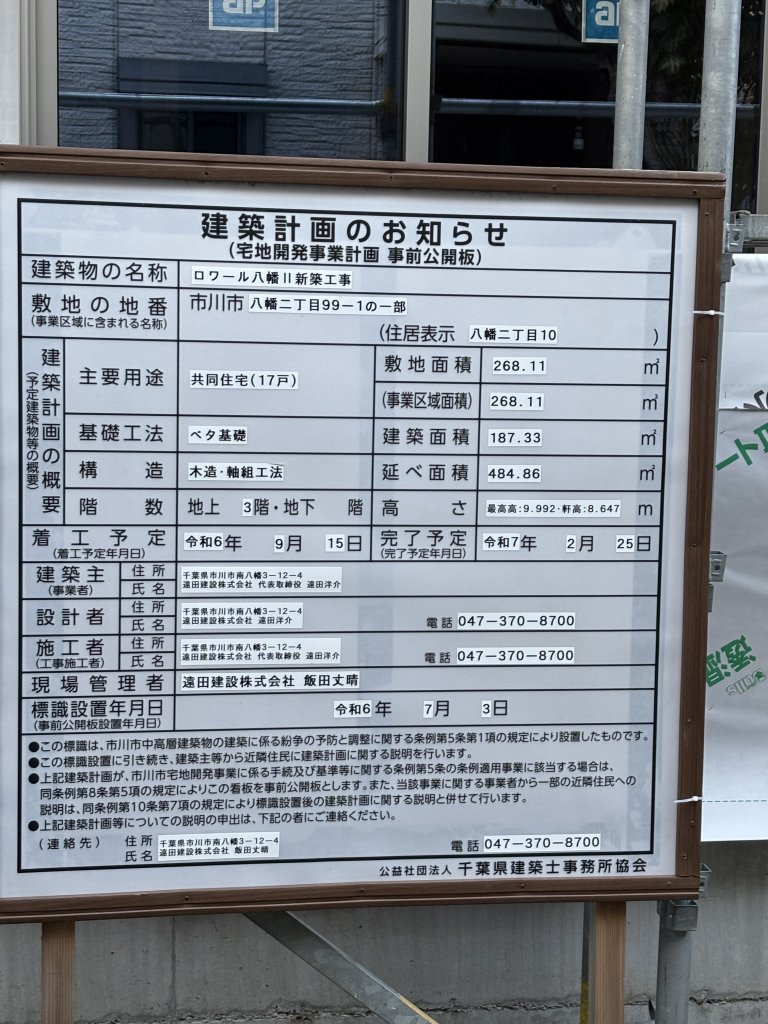 建築計画のお知らせ
(宅地開発事業計画 事前公開板)
建築物の名称 ロワール八幡II新築工事
敷地の地番 市川市 八幡二丁目99-1の一部
(事業区域に含まれる名称) (住居表示 八幡二丁目10 )
建築計画の概要
(予定建築物等の概要)
主要用途 共同住宅(17戸)
敷地面積 268.11 ㎡
(事業区域面積) 268.11 ㎡
基礎工法 ベタ基礎 建築面積 187.33 ㎡
構造 木造・軸組工法 延べ面積 484.86 ㎡
階数 地上 3階・地下 階 高さ 最高高:9.992・軒高:8.647 m
着工予定 令和6年 9月 15日 完了予定 令和7年 2月 25日
(着工予定年月日) (完了予定年月日)
建築主 住所 千葉県市川市南八幡3-12-4
(事業者) 氏名 遠田建設株式会社 代表取締役 遠田洋介
設計者 住所 千葉県市川市南八幡3-12-4
氏名 遠田建設株式会社 遠田洋介 電話 047-370-8700
施工者 住所 千葉県市川市南八幡3-12-4
(工事施工者) 氏名 遠田建設株式会社 代表取締役 遠田洋介 電話 047-370-8700
現場管理者 遠田建設株式会社 飯田丈晴
標識設置年月日 令和6年 7月 3日
(事前公開板設置年月日)
●この標識は、市川市中高層建築物の建築に係る紛争の予防と調整に関する条例第5条第1項の規定により設置したものです。
●この標識設置に引き続き、建築主等から近隣住民に建築計画に関する説明を行います。
●上記建築計画が、市川市宅地開発事業に係る手続及び基準等に関する条例第5条の条例適用事業に該当する場合は、
同条例第8条第5項の規定によりこの看板を事前公開板とします。また、当該事業に関する事業者から一部の近隣住民への
説明は、同条例第10条第7項の規定により標識設置後の建築計画に関する説明と併せて行います。
●上記建築計画等についての説明の申出は、下記の者にご連絡ください。
(連絡先) 住所 千葉県市川市南八幡3-12-4
氏名 遠田建設株式会社 飯田丈晴 電話 047-370-8700
公益社団法人 千葉県建築士事務所協会